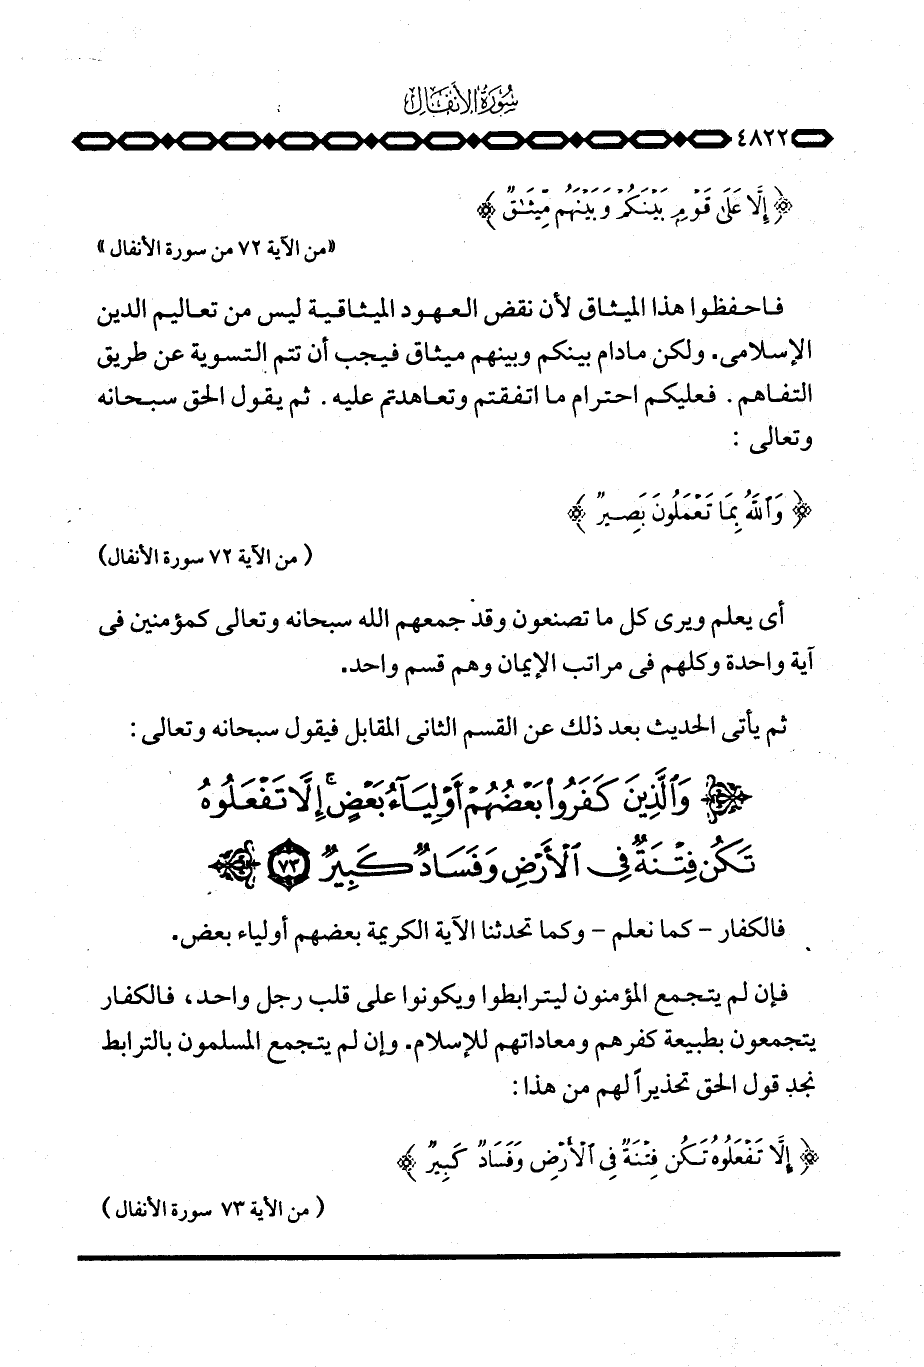 سُورَةُ الأَنفَالِ
٤٨٢٢
﴿ إِلَّا عَلَىٰ قَوْمٍ بَيْنَكُمْ وَبَيْنَهُم مِّيثَٰقٌ ﴾
«من الآية ٧٢ من سورة الأنفال»
فاحفظوا هذا الميثاق لأن نقض العهود الميثاقية ليس من تعاليم الدين
الإسلامى. ولكن مادام بينكم وبينهم ميثاق فيجب أن تتم التسوية عن طريق
التفاهم . فعليكم احترام ما اتفقتم وتعاهدتم عليه . ثم يقول الحق سبحانه
وتعالى :
﴿ وَٱللَّهُ بِمَا تَعْمَلُونَ بَصِيرٌ ﴾
( من الآية ٧٢ سورة الأنفال)
أى يعلم ويرى كل ما تصنعون وقد جمعهم الله سبحانه وتعالى كمؤمنين فى
آية واحدة وكلهم فى مراتب الإيمان وهم قسم واحد.
ثم يأتى الحديث بعد ذلك عن القسم الثانى المقابل فيقول سبحانه وتعالى :
﴿ وَٱلَّذِينَ كَفَرُوا۟ بَعْضُهُمْ أَوْلِيَآءُ بَعْضٍ ۚ إِلَّا تَفْعَلُوهُ
تَكُن فِتْنَةٌ فِى ٱلْأَرْضِ وَفَسَادٌ كَبِيرٌ ٧٣ ﴾
فالكفار - كما نعلم - وكما تحدثنا الآية الكريمة بعضهم أولياء بعض.
فإن لم يتجمع المؤمنون ليترابطوا ويكونوا على قلب رجل واحد، فالكفار
يتجمعون بطبيعة كفرهم ومعاداتهم للإسلام. وإن لم يتجمع المسلمون بالترابط
نجد قول الحق تحذيراً لهم من هذا :
﴿ إِلَّا تَفْعَلُوهُ تَكُن فِتْنَةٌ فِى ٱلْأَرْضِ وَفَسَادٌ كَبِيرٌ ﴾
( من الأية ٧٣ سورة الأنفال )